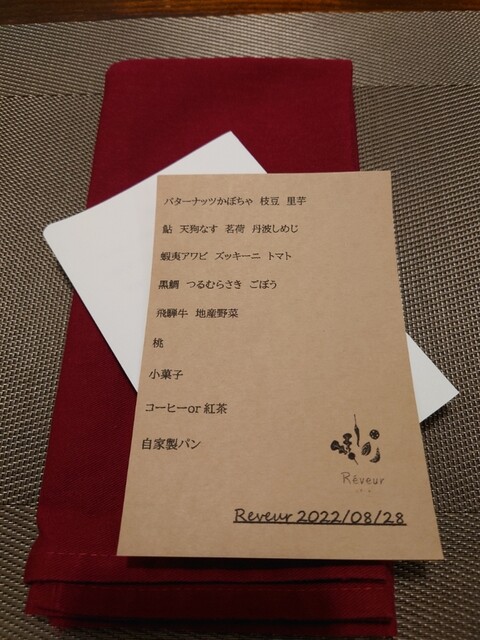 バターナッツかぼちゃ 枝豆 里芋
鮎 天狗なす 茗荷 丹波しめじ
蝦夷アワビ ズッキーニ トマト
黒鯛 つるむらさき ごぼう
飛騨牛 地産野菜
桃
小菓子
コーヒーor 紅茶
自家製パン
Rêveur
Reveur 2022/08/28